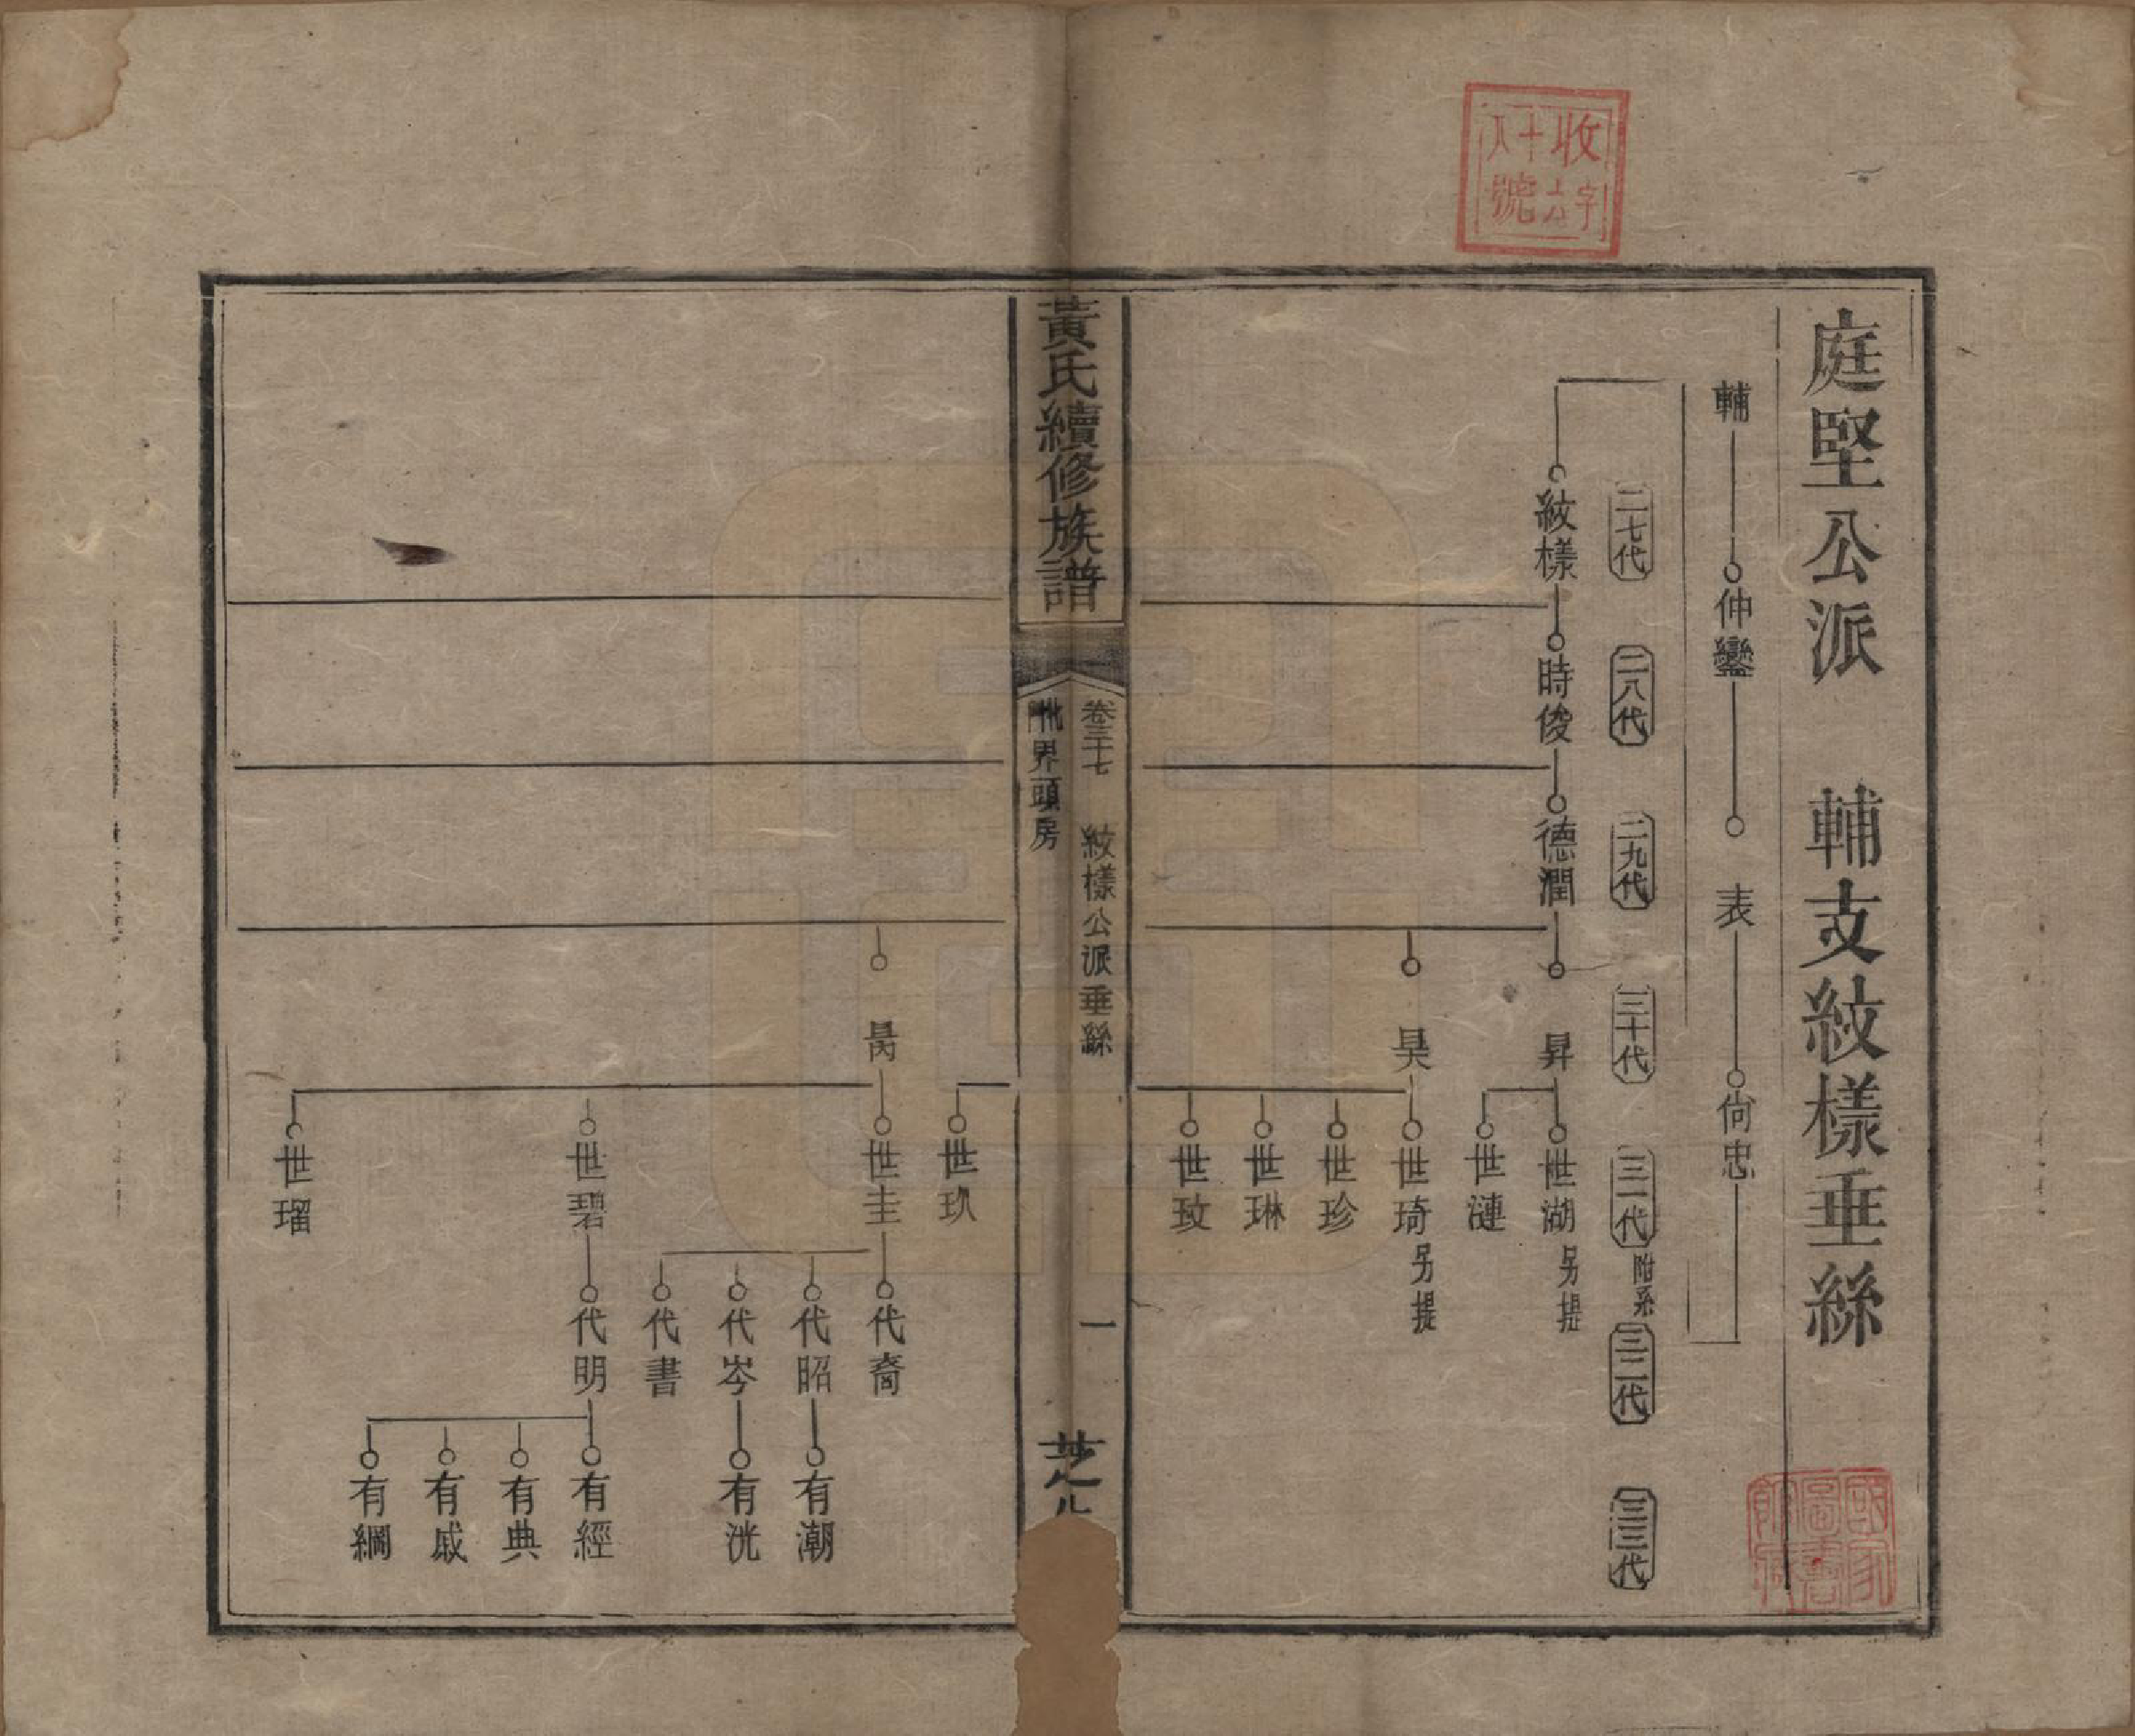 庭堅公派 輔支紋樣垂絲
輔 仲鑾 表 尙忠
二七代 二八代 二九代 三十代 三一代 附系 三二代 三三代
紋樣 時俊 德潤 昇 世湖 另提
世漣
昊 世琦 另提
世珍
世琳
世玟
黃氏續修族譜
卷三十七 紋樣公派垂絲 一
界頭房
世玖
昺 世圭 代裔
代昭 有潮
代岑 有洸
代書
世碧 代明 有經
有典
有戚
有綱
世瑠
收字
十六
八號
國家
圖書
館藏